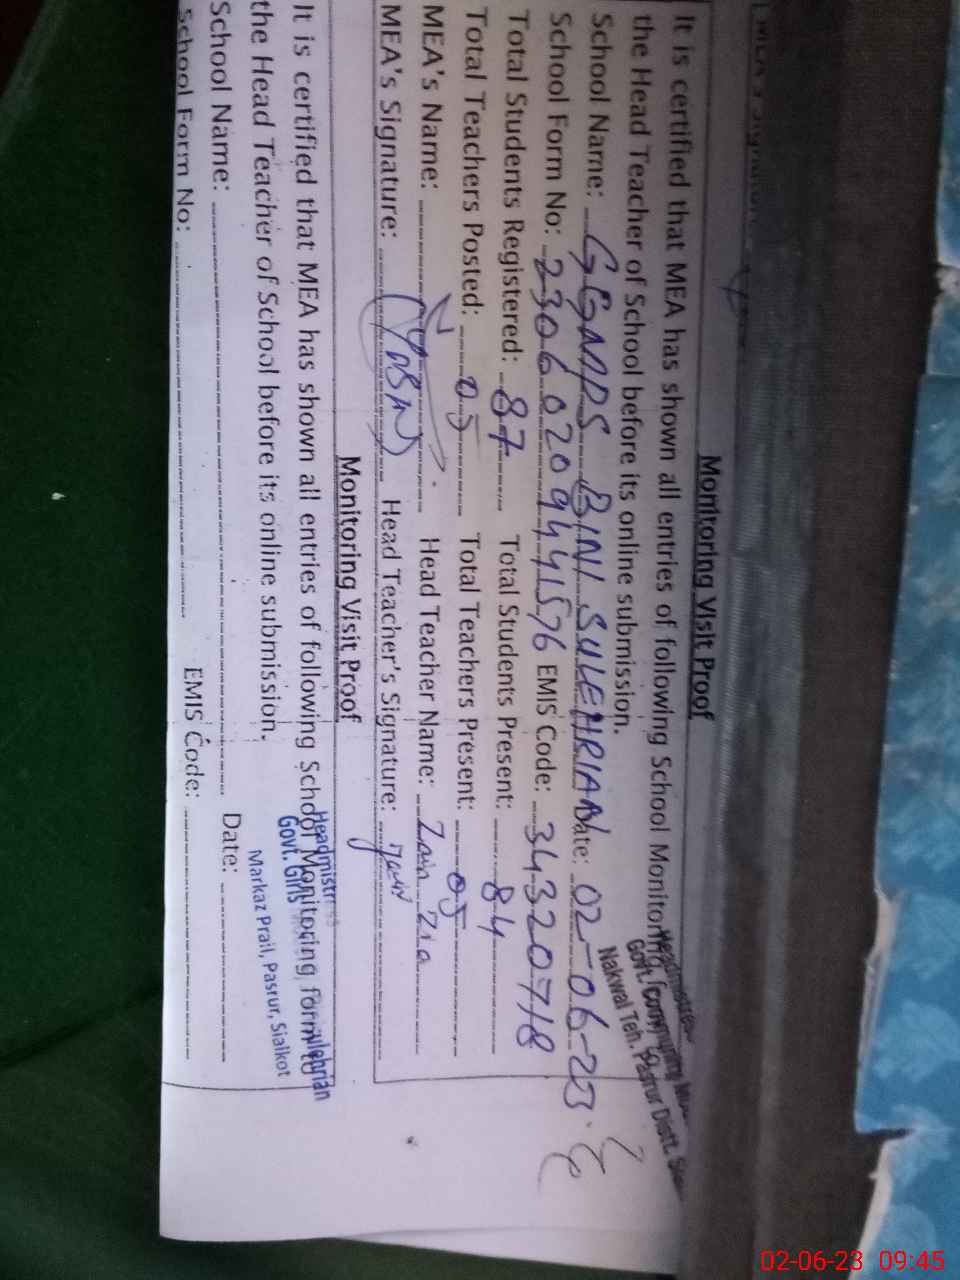 Monitoring Visit Proof
It is certified that MEA has shown all entries of following School Monitoring form to
the Head Teacher of School before its online submission.
School Name: GGMPS BINI SULEHRIAN Date: 02-06-23
School Form No: 23060209441576 EMIS Code: 34320718
Total Students Registered: 87 Total Students Present: 84
Total Teachers Posted: 05 Total Teachers Present: 05
MEA's Name: Head Teacher Name: Zain Zia
MEA's Signature: Head Teacher's Signature:
Govt. Community
Nakwal Teh. Pasrur Distt.
Monitoring Visit Proof
It is certified that MEA has shown all entries of following School Monitoring form to
the Head Teacher of School before its online submission.
Headmistress
Govt. Girls
Markaz Prail, Pasrur, Sialkot
School Name: Date:
School Form No: EMIS Code:
02-06-23 09:45